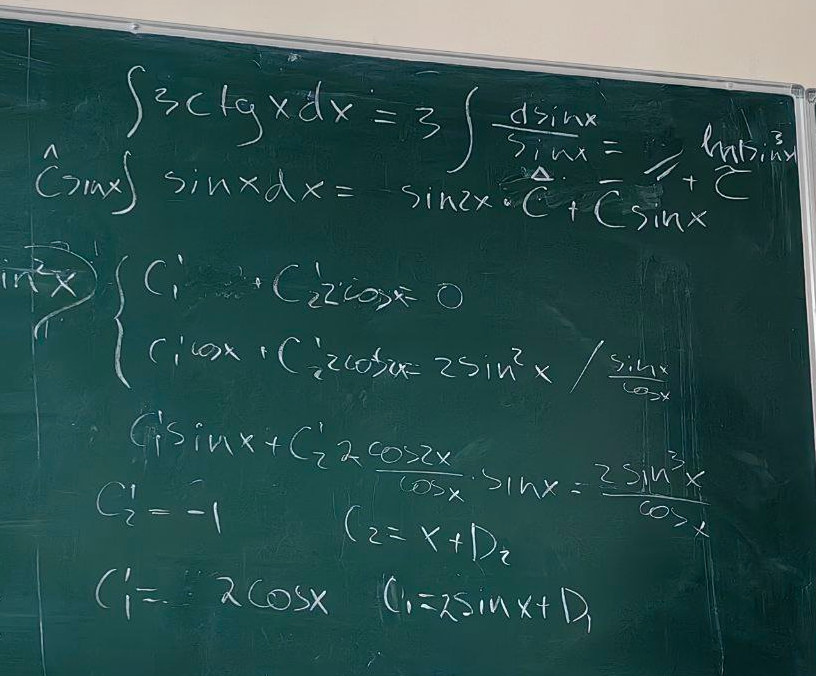 ∫3ctgxdx = 3∫ dsinx/sinx = ln|sin³x|
Ĉsinx∫ sinxdx = -sin2x·Ĉ + C̄sinx + C̃
in²x) { C₁' + C₂'2cosx = 0
C₁'cosx + C₂'2cos2x = 2sin²x / sinx/cosx
C₁'sinx + C₂'2 cos2x/cosx · sinx = 2sin³x/cosx
C₂' = -1 C₂ = x + D₂
C₁' = 2cosx C₁ = 2sinx + D₁